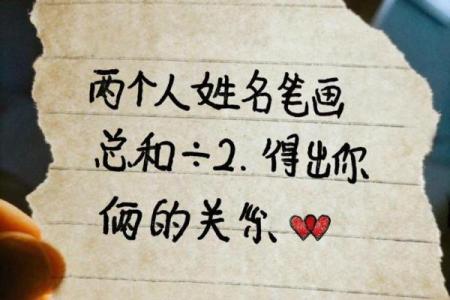 两个人姓名笔画
总和÷2.得出你
俩的关系